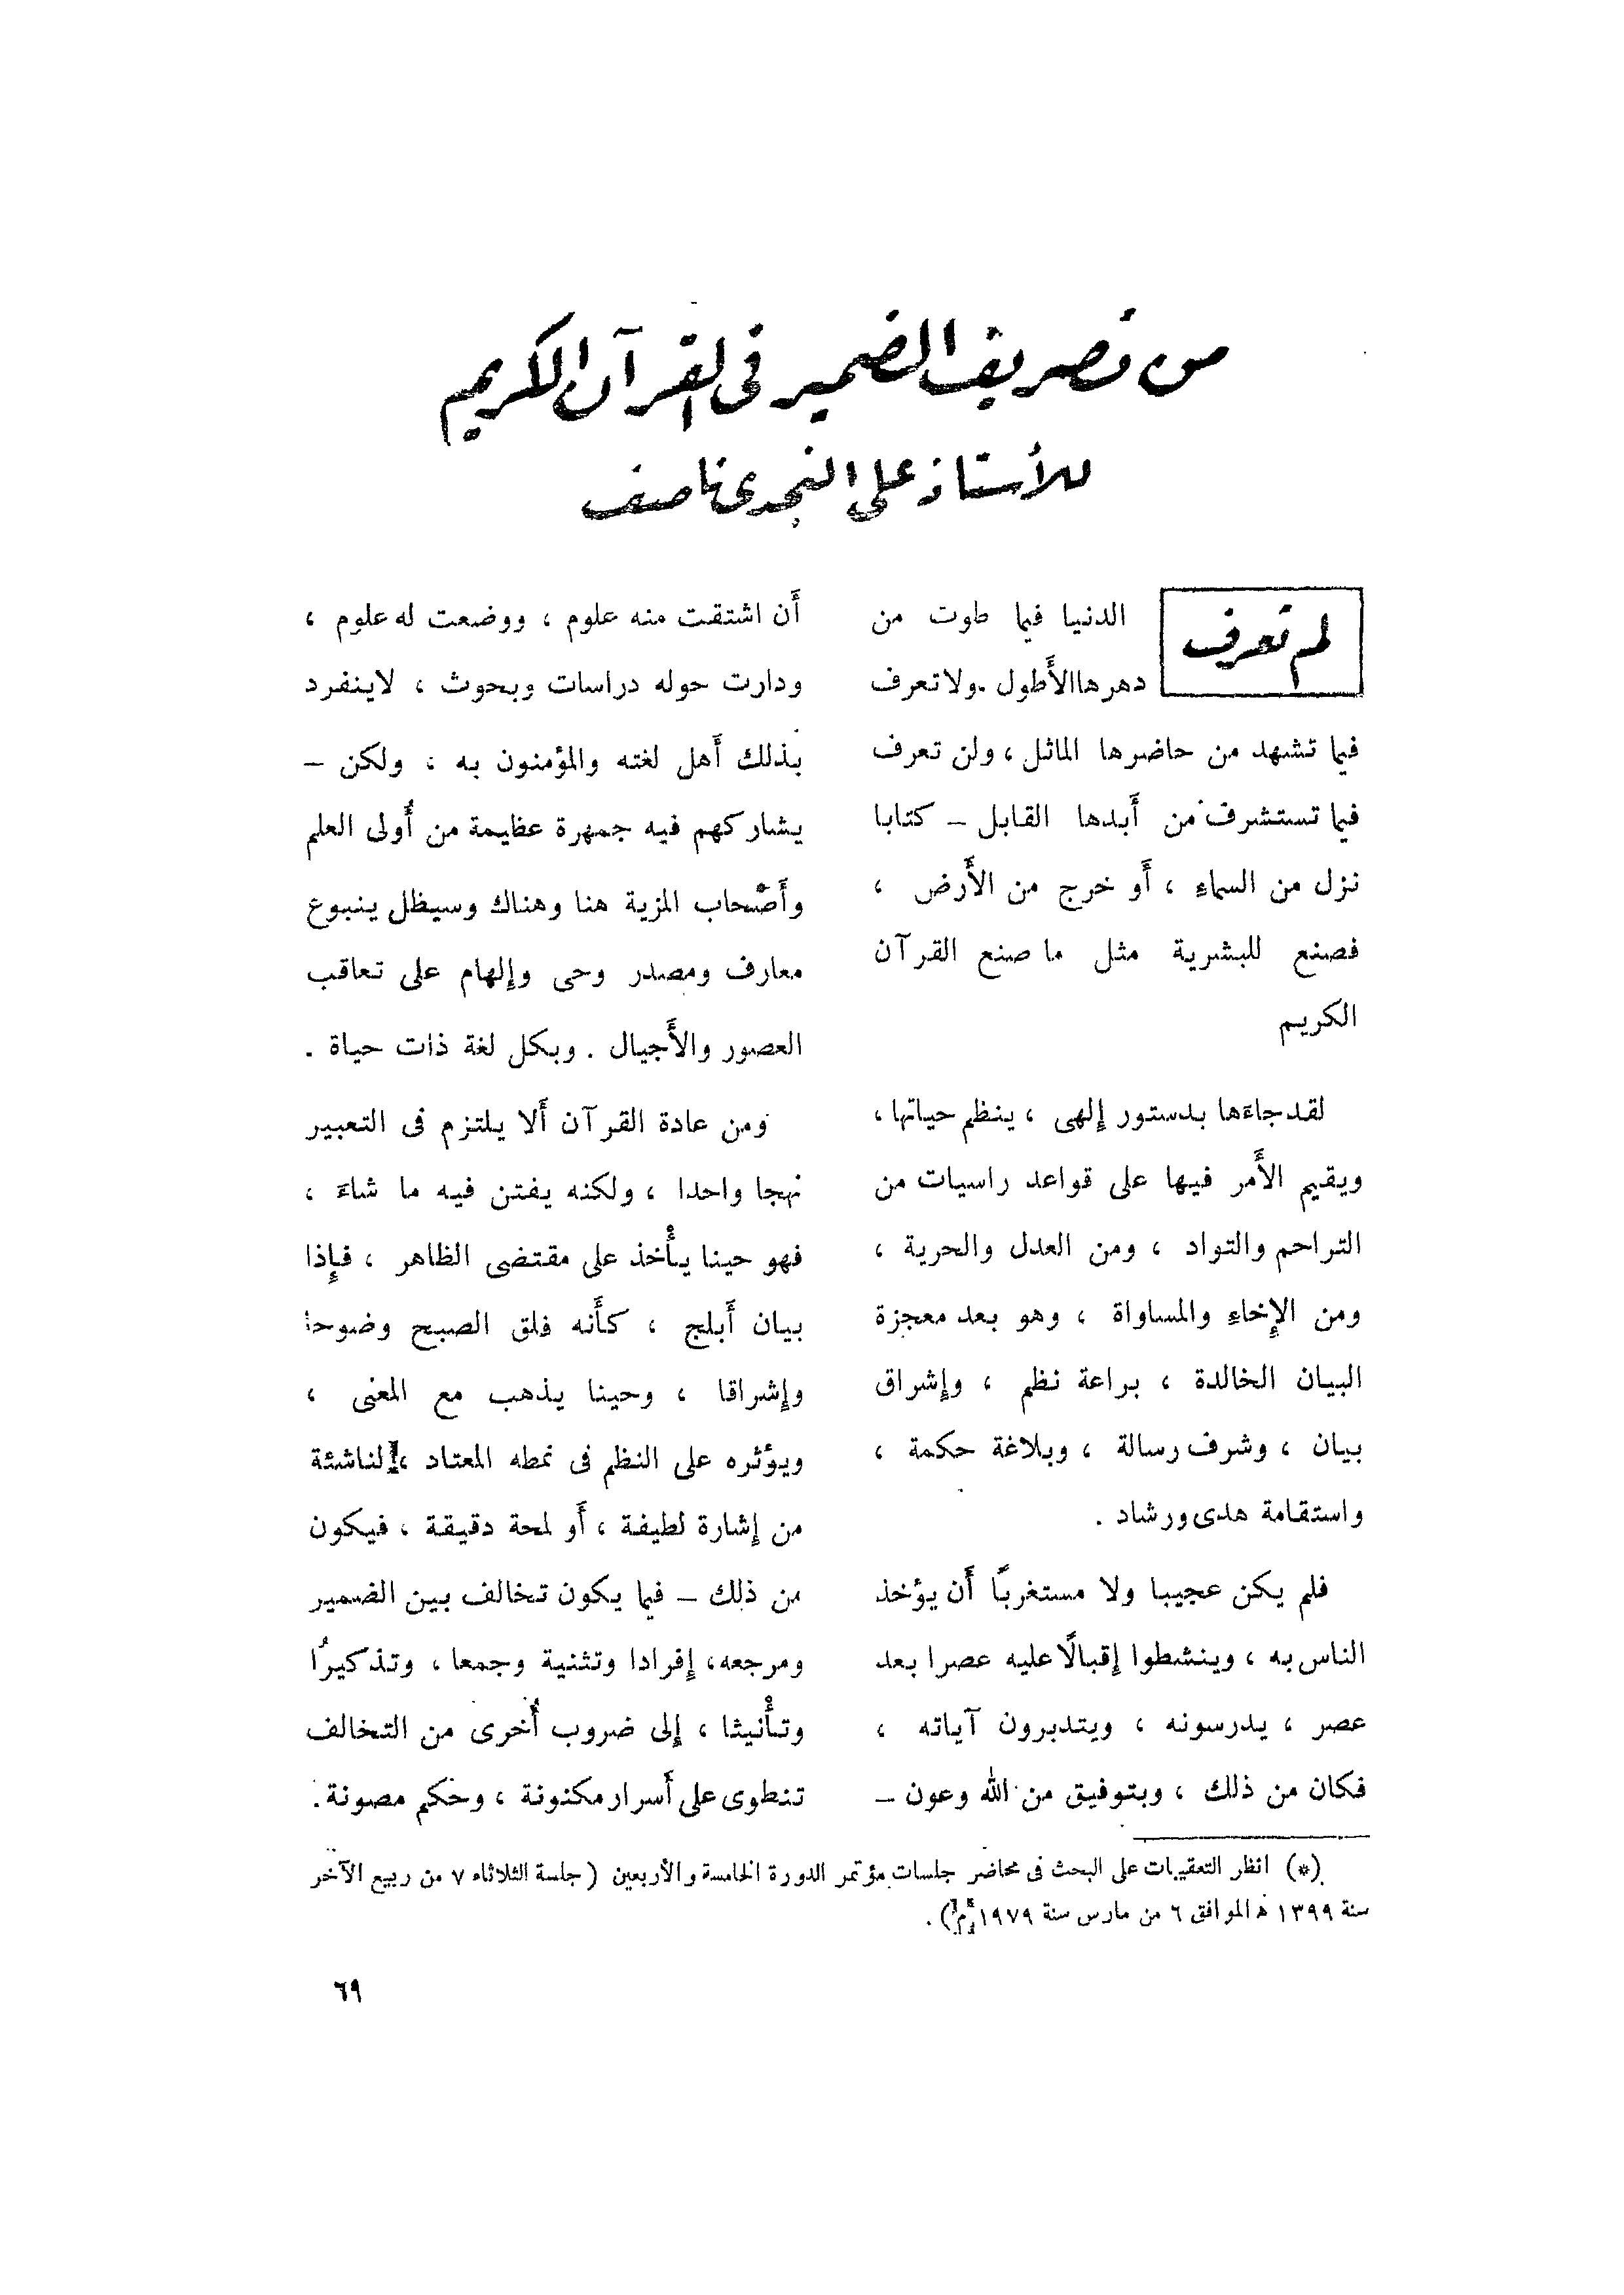 من تصريف الضمير فى القرآن الكريم
للأستاذ على النجدى ناصف
لم تعرف
الدنيا فيما طوت من
دهرها الأَطول . ولا تعرف
فيما تشهد من حاضرها الماثل ، ولن تعرف
فيما تستشرف من أَبدها القابل – كتابا
نزل من السماءِ ، أَو خرج من الأَرض ،
فصنع للبشرية مثل ما صنع القرآن
الكريم
لقد جاءَها بدستور إلهى ، ينظم حياتها ،
ويقيم الأَمر فيها على قواعد راسيات من
التراحم والتواد ، ومن العدل والحرية ،
ومن الإِخاءِ والمساواة ، وهو بعد معجزة
البيان الخالدة ، براعة نظم ، وإشراق
بيان ، وشرف رسالة ، وبلاغة حكمة ،
واستقامة هدى ورشاد .
فلم يكن عجيبا ولا مستغربًا أَن يؤخذ
الناس به ، وينشطوا إقبالًا عليه عصرا بعد
عصر ، يدرسونه ، ويتدبرون آياته ،
فكان من ذلك ، وبتوفيق من الله وعون –
أَن اشتقت منه علوم ، ووضعت له علوم ،
ودارت حوله دراسات وبحوث ، لاينفرد
بذلك أَهل لغته والمؤمنون به ، ولكن –
يشاركهم فيه جمهرة عظيمة من أُولى العلم
وأَصْحاب المزية هنا وهناك وسيظل ينبوع
معارف ومصدر وحى وإلهام على تعاقب
العصور والأَجيال . وبكل لغة ذات حياة .
ومن عادة القرآن أَلا يلتزم فى التعبير
نهجا واحدا ، ولكنه يفتن فيه ما شاءَ ،
فهو حينا يأْخذ على مقتضى الظاهر ، فإِذا
بيان أَبلج ، كأَنه فلق الصبح وضوحا
وإشراقا ، وحينا يذهب مع المعنى ،
ويؤثره على النظم فى نمطه المعتاد ، لناشئة
من إشارة لطيفة ، أَو لمحة دقيقة ، فيكون
من ذلك – فيما يكون تخالف بين الضمير
ومرجعه، إفرادا وتثنية وجمعا ، وتذكيرًا
وتأْنيثا ، إلى ضروب أُخرى من التخالف
تنطوى على أَسرار مكنونة ، وحكم مصونة .
(*) انظر التعقيبات على البحث فى محاضر جلسات مؤتمر الدورة الخامسة والأربعين ( جلسة الثلاثاء ٧ من ربيع الآخر
سنة ١٣٩٩ ه الموافق ٦ من مارس سنة ١٩٧٩ م) .
٦٩